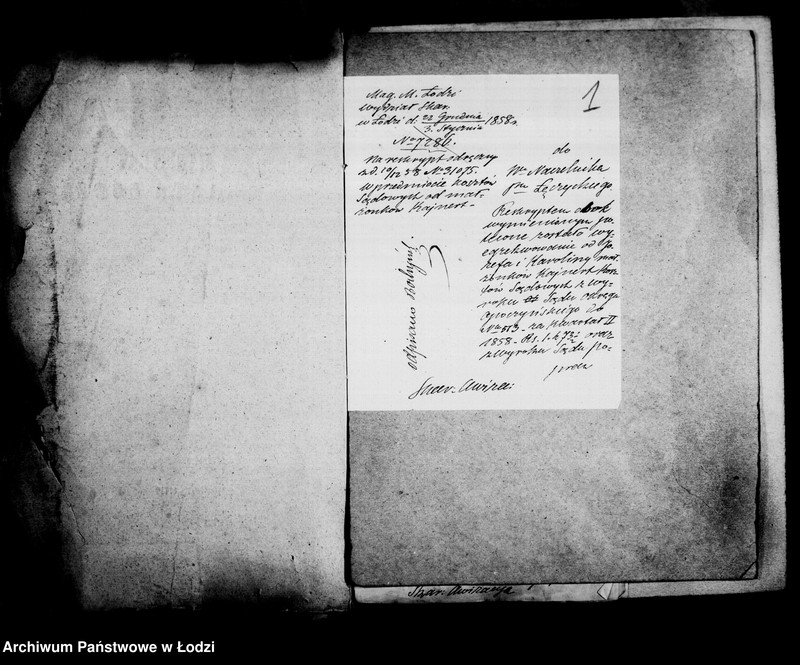 1
Mag. M. Łodzi
Wydział Skar.
w Łodzi d. 22 Grudnia 1858 r.
3. Stycznia
No 7286.
Na reskrypt
z d. 10/12 58 No 31075.
w przedmiocie kosztów
Sądowych od mał-
żonków Kajnert -
do
Wo Naczelnika
Ptu Łęczyckiego
Reskryptem obok
wymienionym po-
lecone zostało wy-
egzekwowanie od Jó-
zefa i Karoliny mał-
żonków Kajnert kosz-
tów Sądowych z wy-
roku Sądu okręgu
Zgierzyńskiego do
No 813 - za kwartał II
1858 - Rs. 1 k 73½ oraz
z wyroku Sądu po-
odpisano
Skar.
Skar.
Archiwum Państwowe w Łodzi